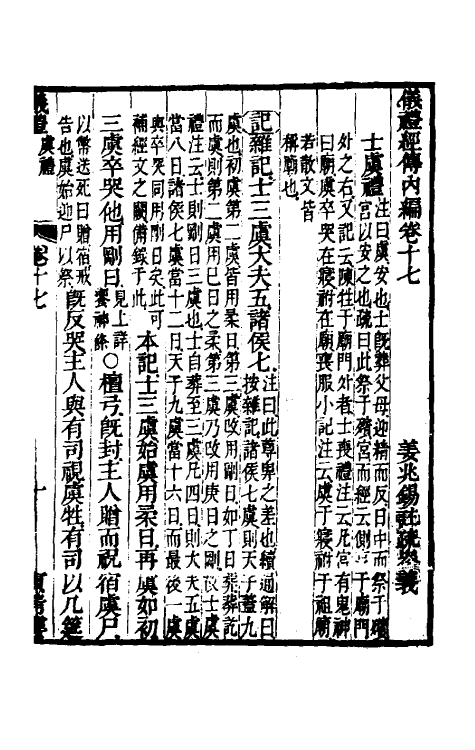 儀禮經傳內編卷十七
姜兆錫註疏參義
士虞禮
注曰虞安也士旣葬父母迎精而反日中而祭于殯
宮以安之也疏曰此祭于殯宮而經云側亨于廟門
外之右又記云陳牲于廟門外者士喪禮注云凡宮有鬼神
曰廟虞卒哭在寢祔在廟喪服小記注云虞于寢祔于祖廟
若散文皆
稱廟也
記雜記士三虞大夫五諸侯七
注曰此尊卑之差也續通解曰
按雜記諸侯七虞則天子蓋九
虞也初虞第二虞皆用柔日第三虞改用剛日如丁日葬葬訖
而虞則第二虞用巳日之柔第三虞乃改用庚日之剛故士虞
禮注云士則剛日三虞也士自葬至三虞凡四日則大夫五虞
當八日諸侯七虞當十二日天子九虞當十六日而最後一虞
與卒哭同用剛日定此可
補經文之闕備錄于此
本記士三虞始虞用柔日再虞如初
三虞卒哭他用剛日
見上詳
饗神條
○檀弓旣封主人贈而祝宿虞尸
以幣送死曰贈宿戒
告也虞始迎尸以祭
旣反哭主人與有司視虞牲有司以几筵
儀禮 虞禮 卷十七 一